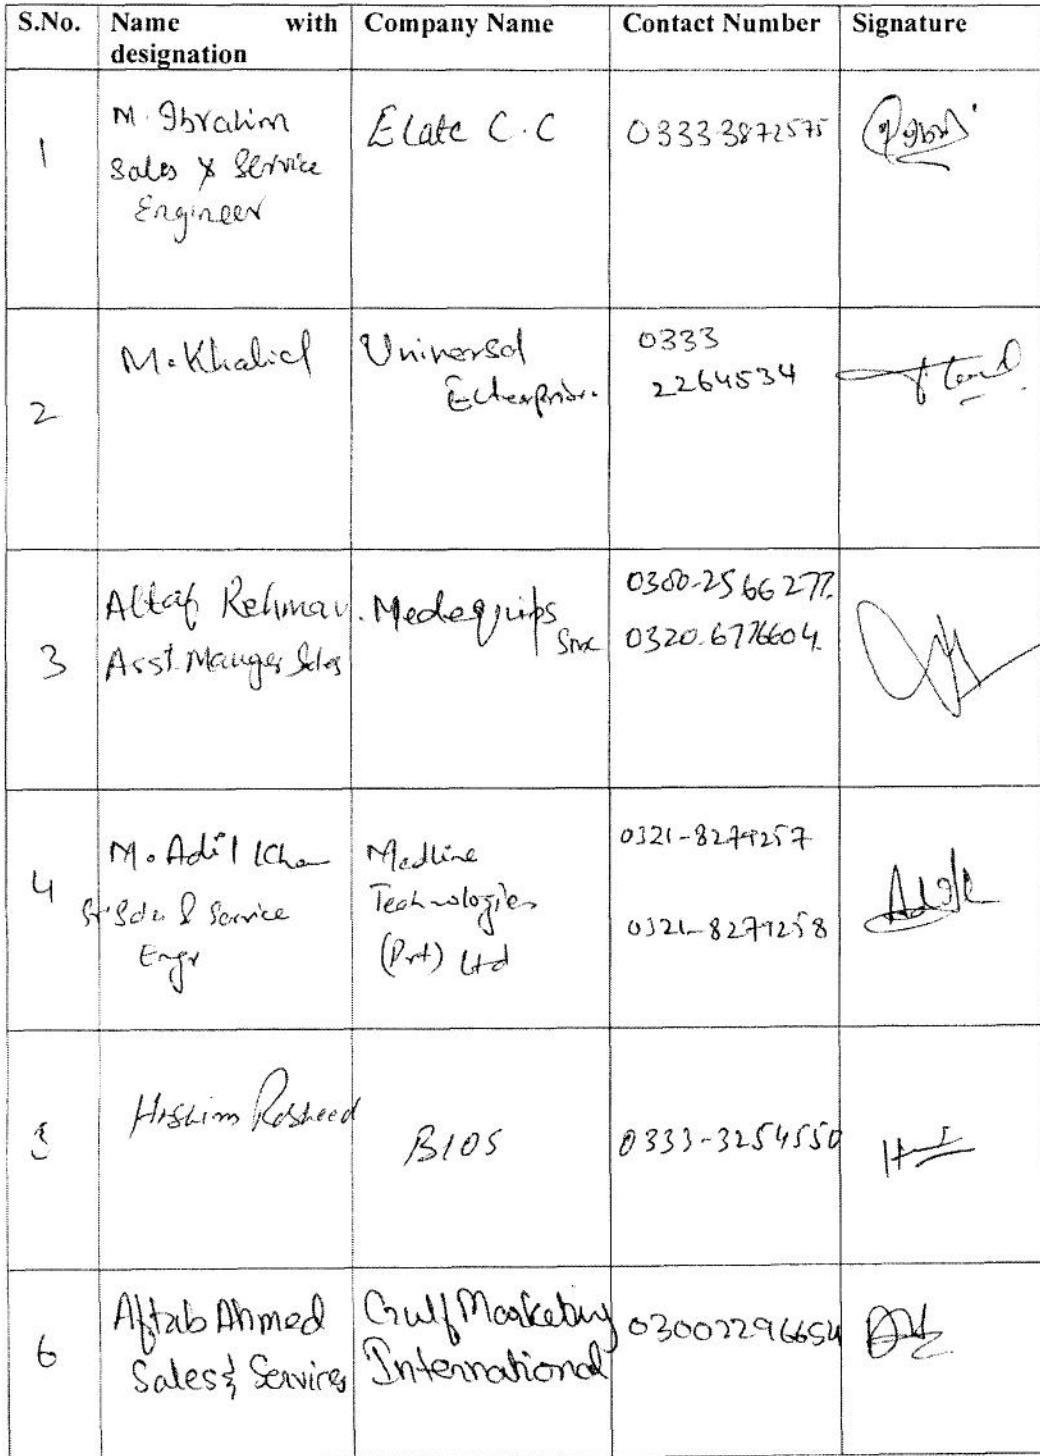 S.No. Name with designation Company Name Contact Number Signature
1
M. Ibrahim
Sales & Service
Engineer
Elate C.C
03333872575
2
M. Khalid
Universal
Enterprise.
0333
2264534
3
Altaf Rehman.
Asst. Manger Sales
Medequips
0300-2566277.
0320.6776604.
4
M. Adil Khan
Service
Engr
Medline
Technologies
(Pvt) Ltd
0321-8279257
0321-8279258
5
Hashim Rasheed
BIOS
0333-3254550
6
Aftab Ahmed
Sales & Services
Gulf Marketing
International
03002296654